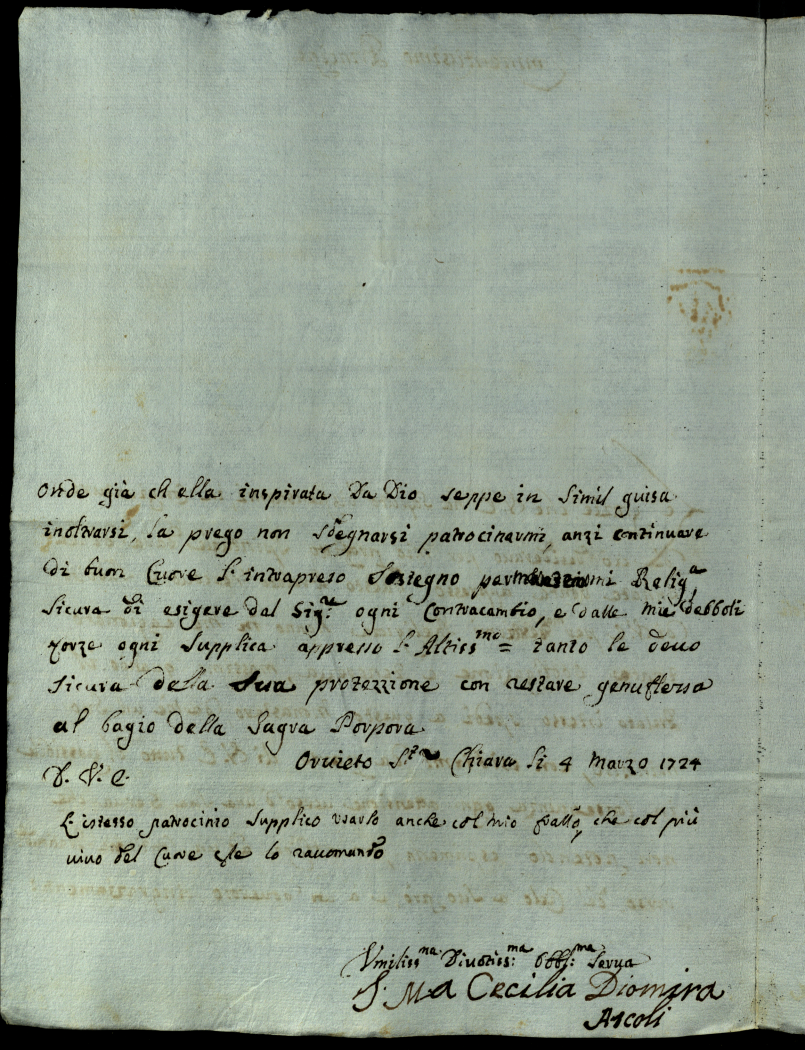 Onde già ch ella inspirata Da Dio seppe in simil guisa
inoltrarsi, la prego non sdegnarsi patrocinarmi, anzi continuare
di buon Cuore l'intrapreso Sostegno per mi Relig.a
sicura di esigere dal Sig.re ogni Contracambio, e dalle mie debboli
forze ogni supplica appresso l'Altiss.mo = tanto le devo
sicura della Sua protezzione con restare genuflessa
al bagio della Sagra Porpora
Orvieto S.ta Chiara li 4 Marzo 1724
D. V. E.
L'istesso patrocinio supplico usarlo anche col mio fratello che col più
vivo del Cuore gle lo raccomando
Umiliss.ma Divotiss.ma Obbl.ma Serva
S. M.a Cecilia Diomira
Ascoli